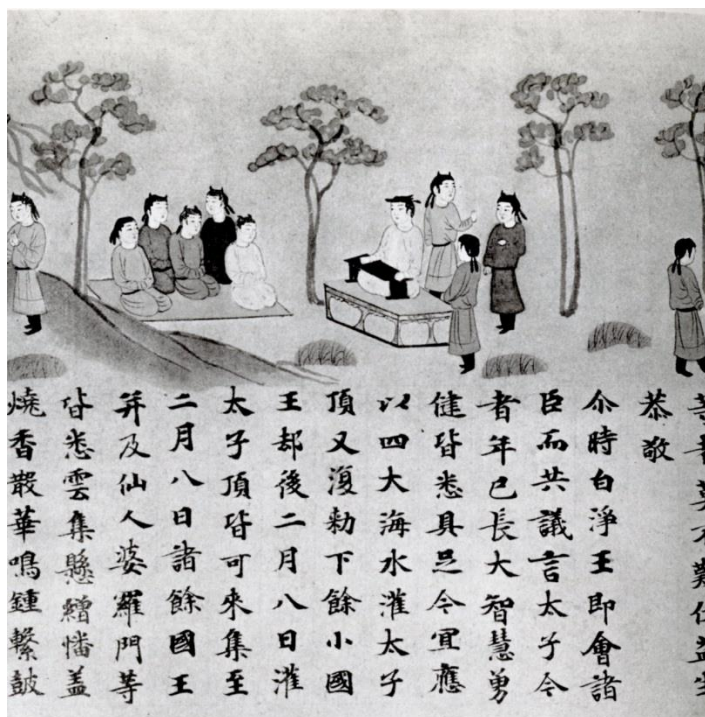 者莫不歎伏益生
恭敬
尒時白淨王即會諸
臣而共議言太子今
者年已長大智慧勇
健皆悉具足今宜應
以四大海水灌太子
頂又復勅下餘小國
王却後二月八日灌
太子頂皆可來集至
二月八日諸餘國王
并及仙人婆羅門等
皆悉雲集懸繒幡蓋
燒香散華鳴鍾擊鼓